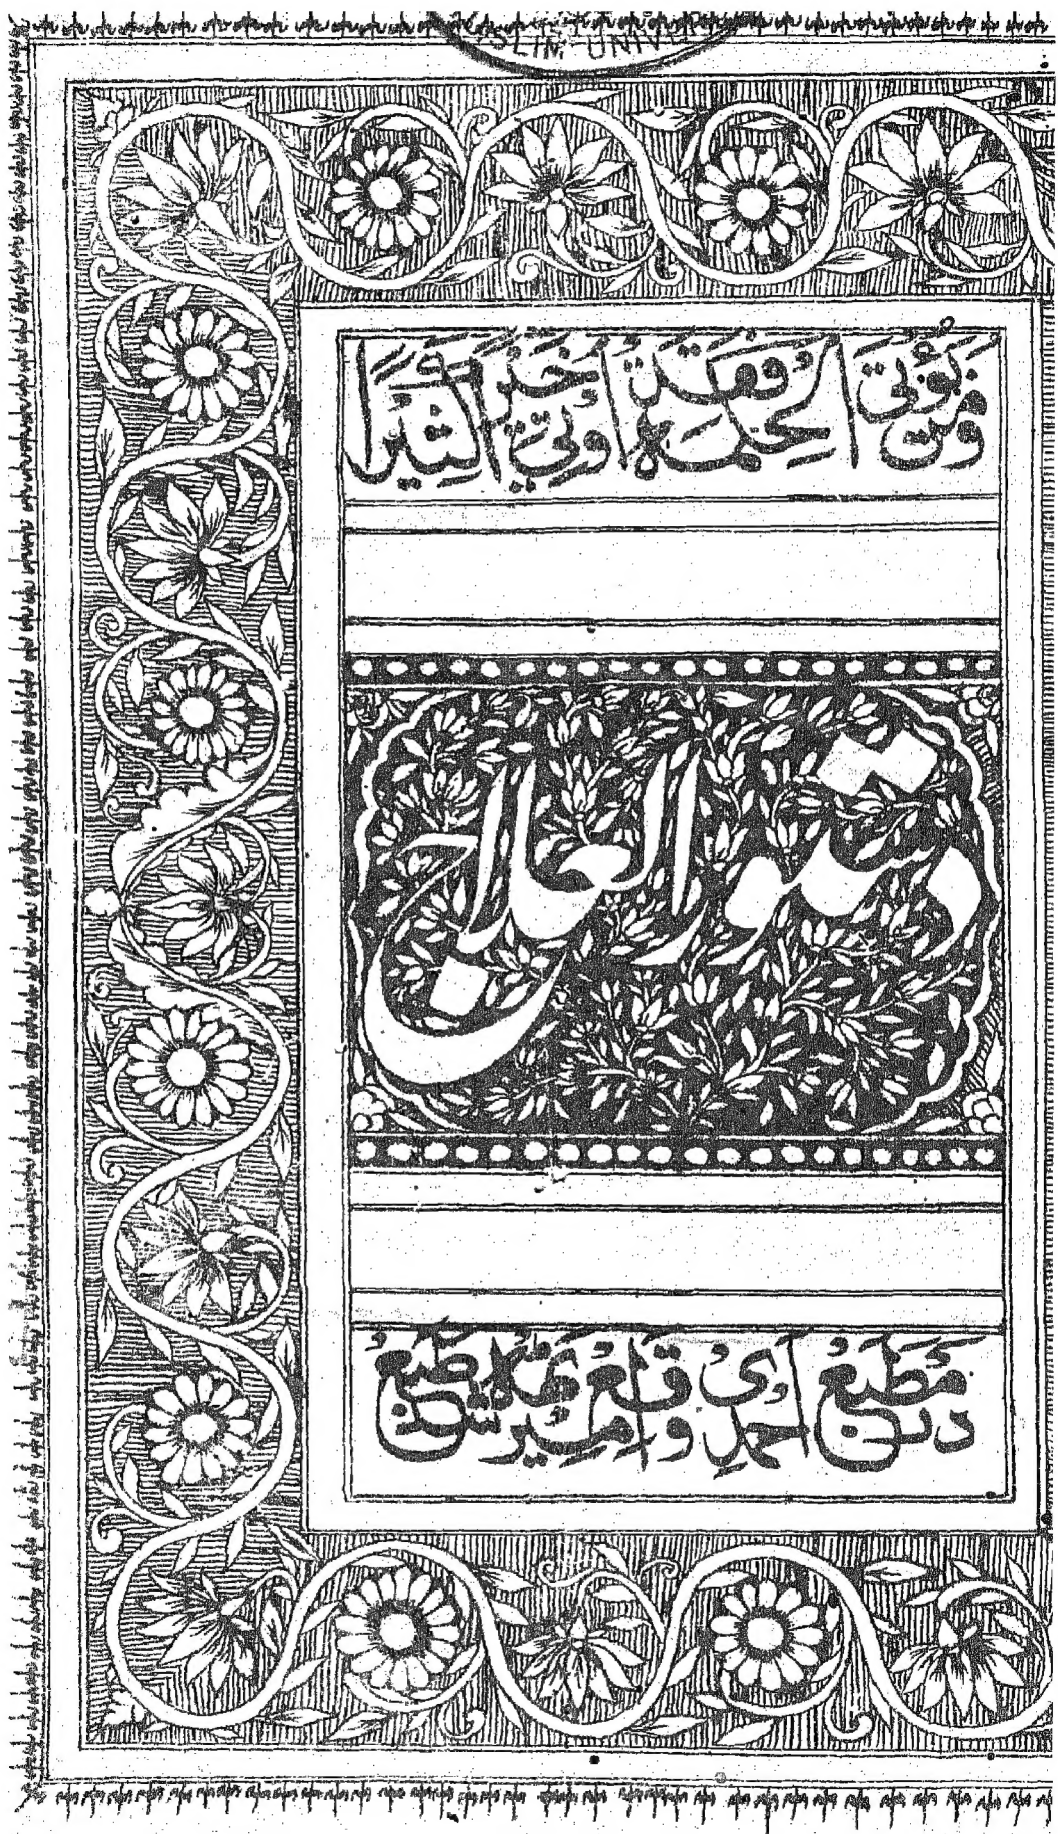 SLIM UNIVE
ومن يؤتى الحكمة فقد اوتى خيراً كثيراً
دستور العلاج
در مطبع احمدی واقع طبع